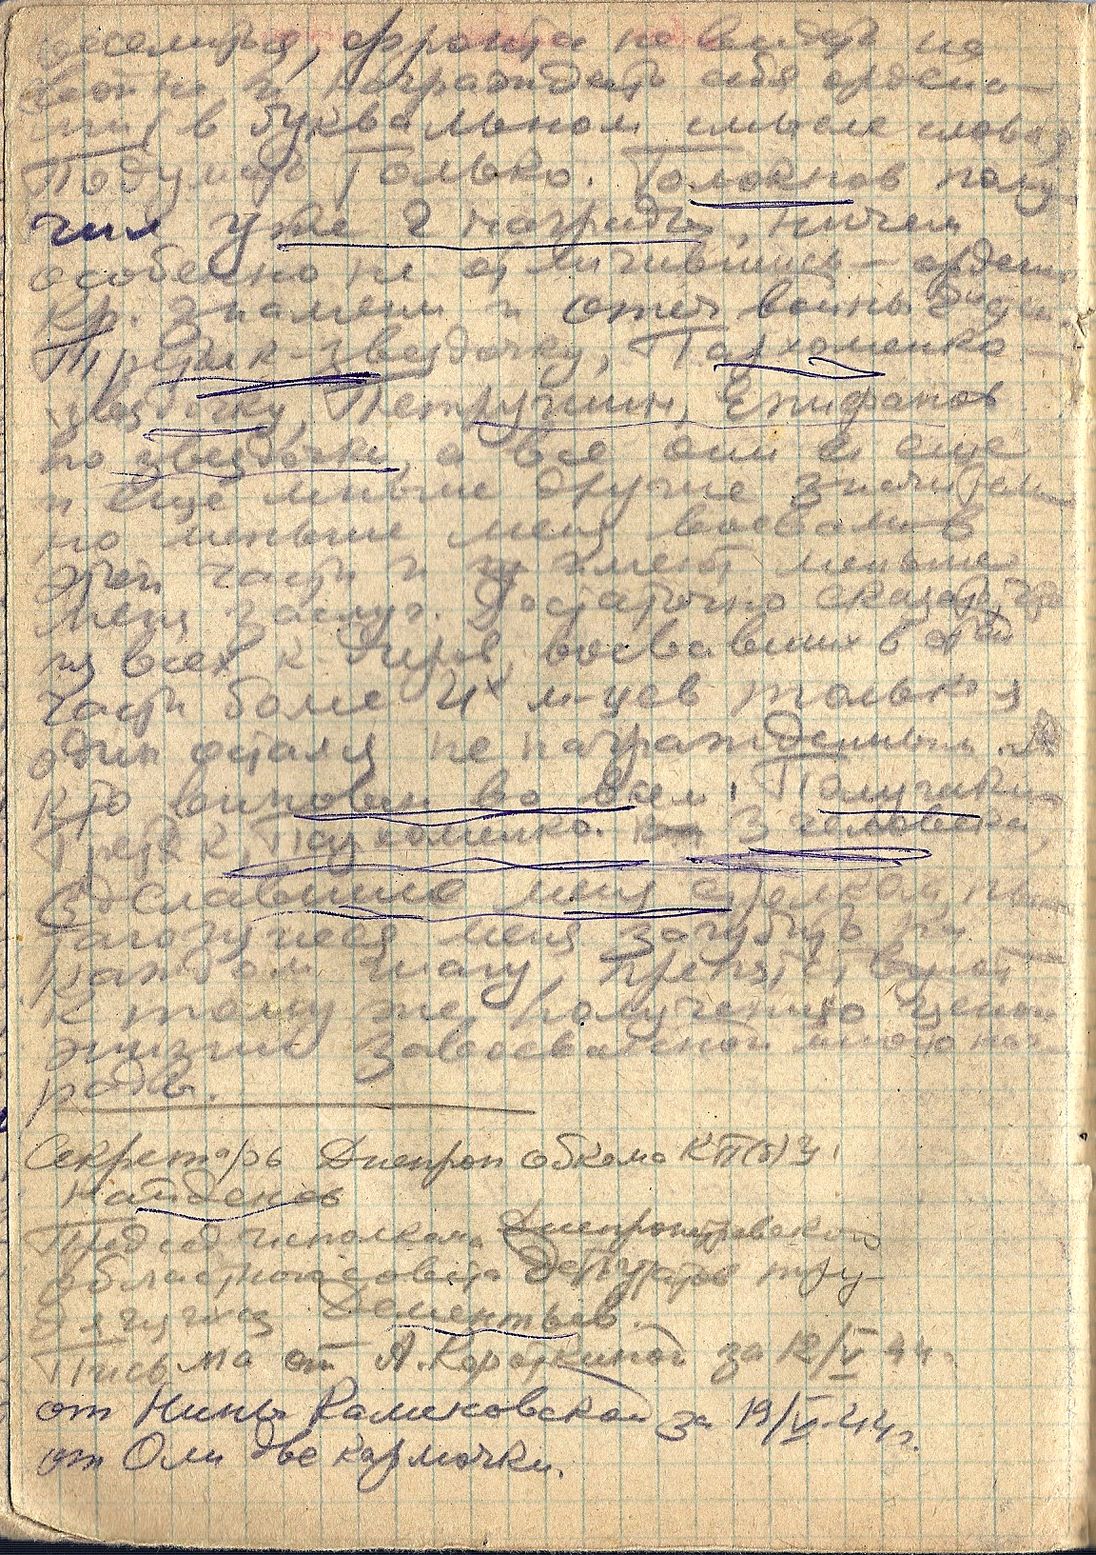 веселиться, фронта не видеть не
и награждать себя ордена-
ми в буквальном смысле слова.
Подумать только. Толокнов полу
чил уже 2 награды, ничем
особенно не отличившись — орден
Кр. знамени и отеч войны
Третяк – звездочку, Пархоменко –
звездочку, Петрушин, Епифанов
по звездочке, а все они и еще
и еще многие другие значитель
но меньше меня воевали в
этой части и имеют меньше
меня заслуг. Достаточно сказать, что
из всех к-диров, воевавших в этой
части более 4х м-цев только я
один остался не награжденным.
Кто виновен во всем? Полушкин
Третяк, Пархоменко. 3 человека,
меня стрелком, пы-
тающиеся меня загубить на
каждом шагу, препятствует
к тому же получению ценой
жизни завоеванной мною наг-
рады.
Секретарь Днепроп обкома КП(б)У
Найденов
Председ исполкома Днепропетровского
областного совета депутатов тру-
дящихся Дементьев.
Письма от А. Короткиной за 12/V 44.
от Нины Каменовской за 19/V-44г.
от Оли две карточки.